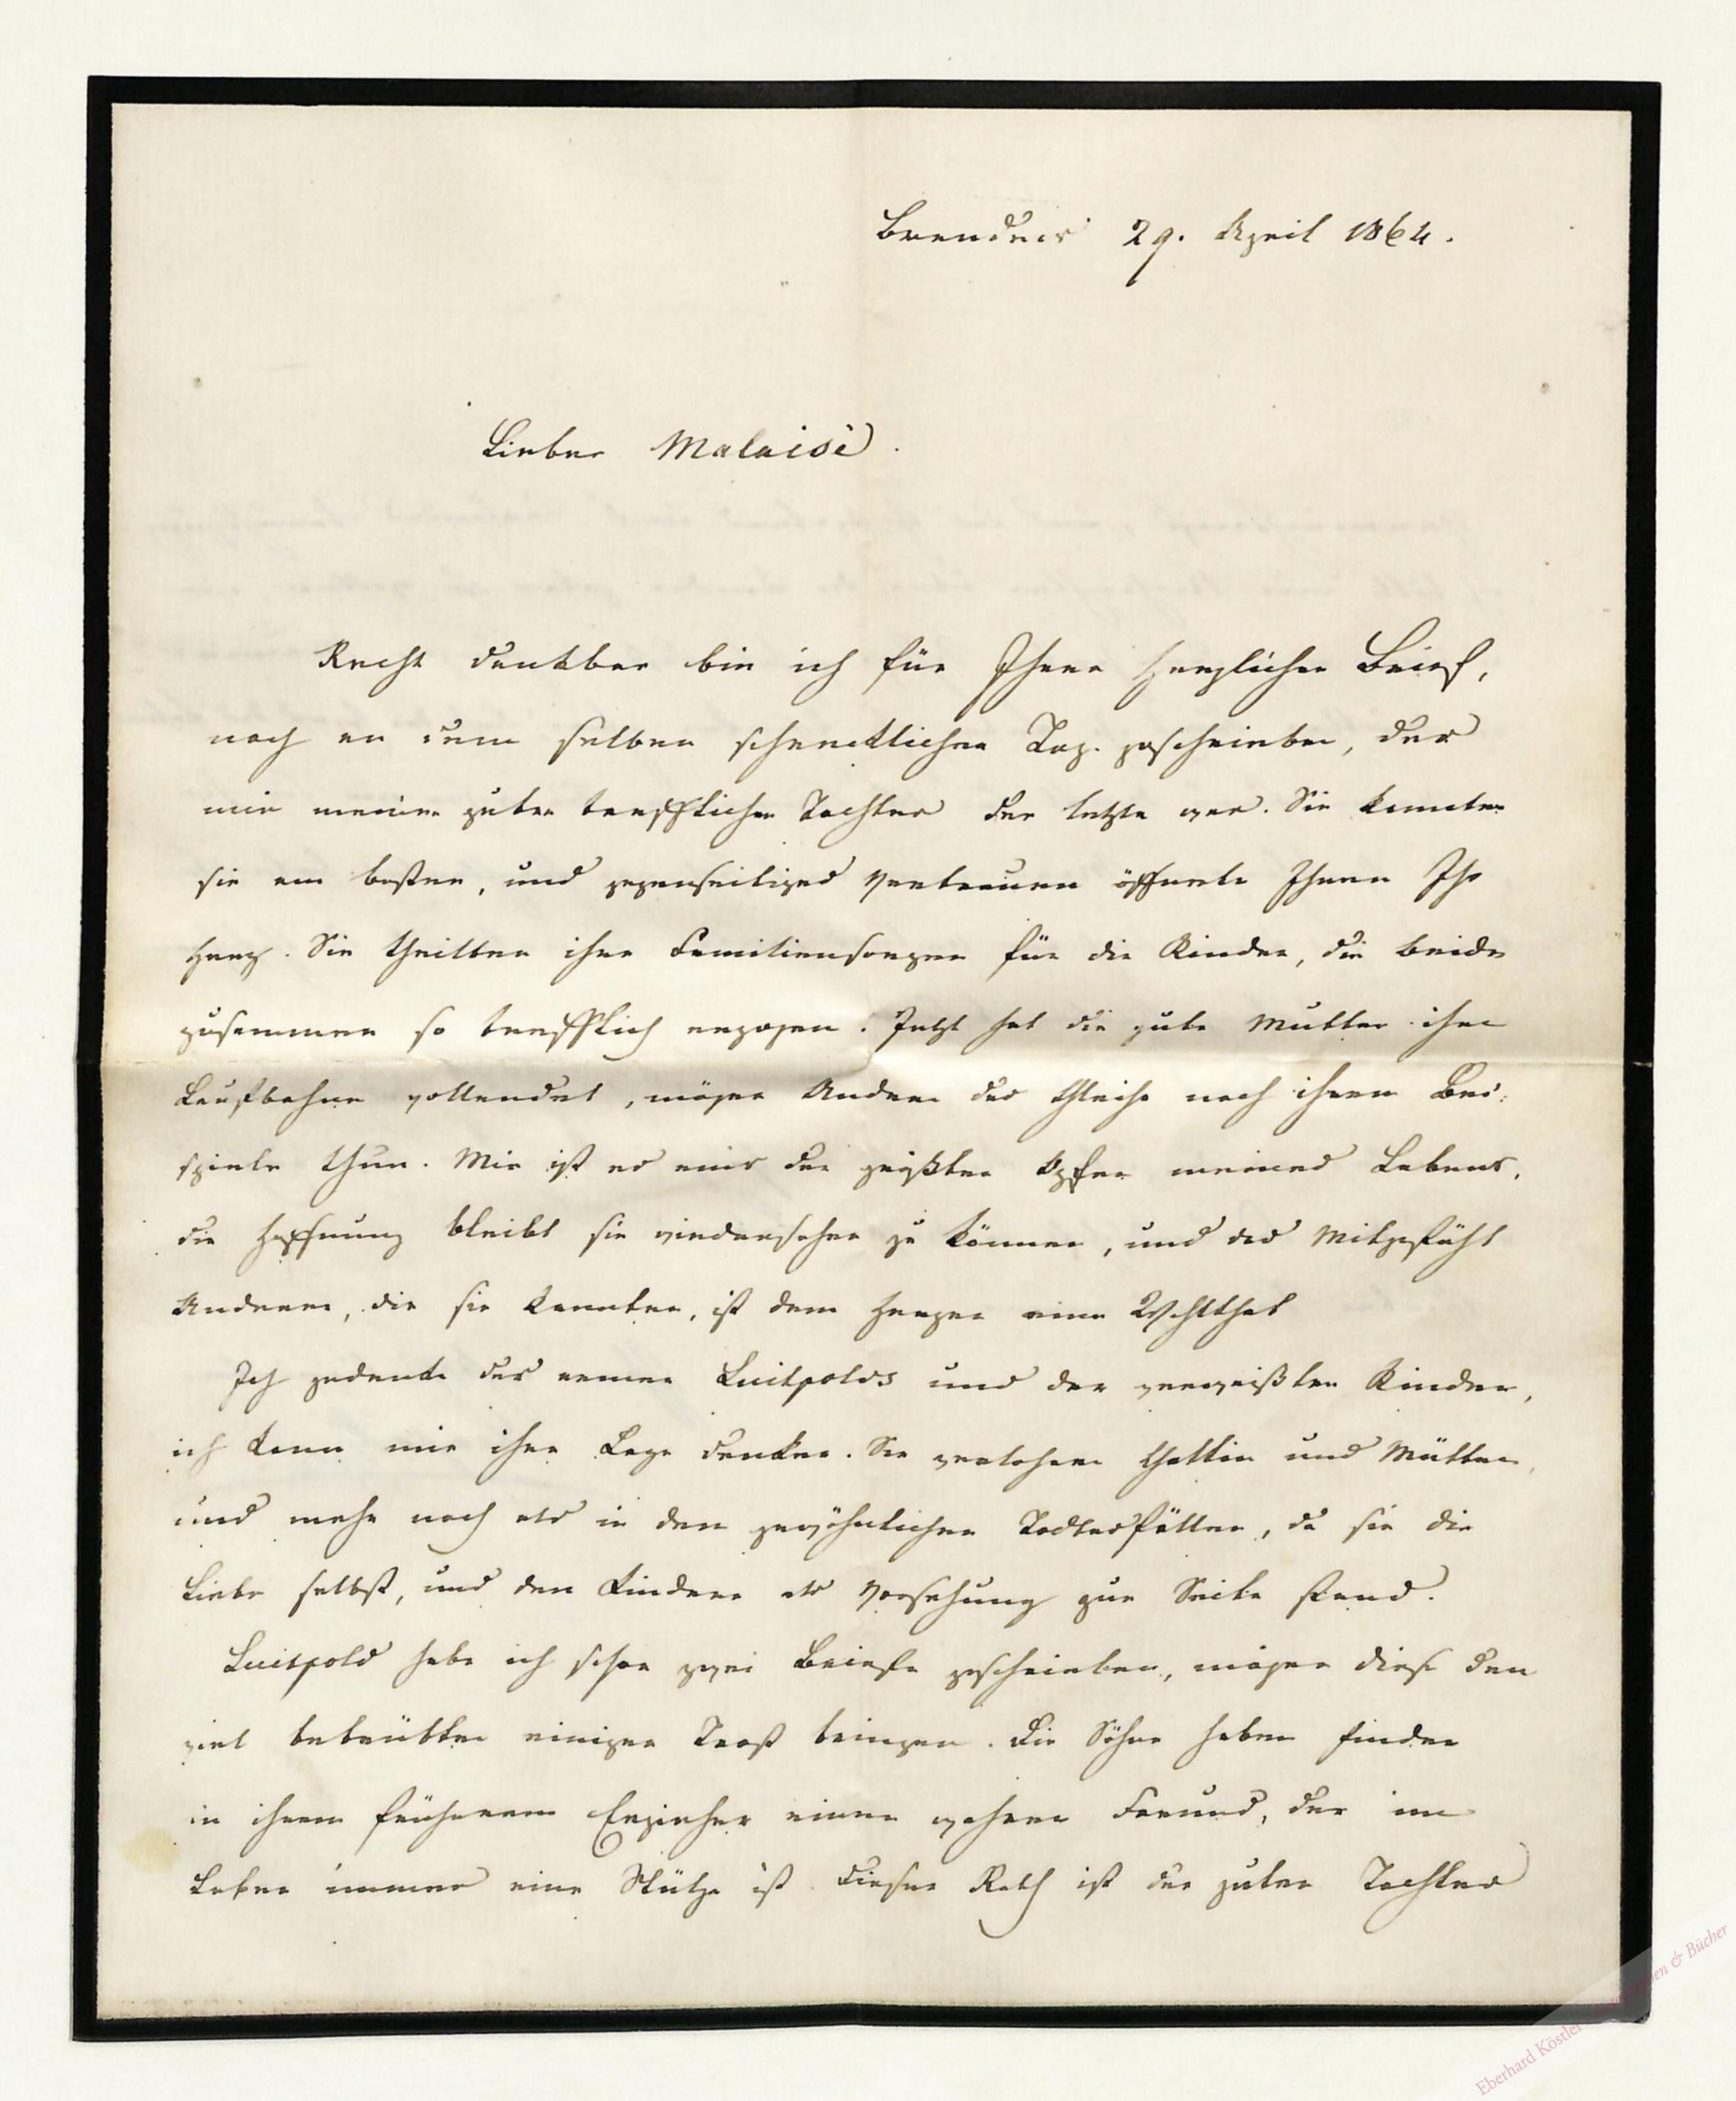 Brandeis 29. April 1864.
Lieber Malaisé.
Recht dankbar bin ich für Ihren herzlichen Brief,
noch an dem selben schrecklichen Tag geschrieben, der
mir meiner guten trefflichen Tochter der letzte war. Sie kannten
sie am besten, und gegenseitiges Vertrauen öffnete Ihnen Ihr
Herz. Sie theilten ihre Familiensorgen für die Kinder, die beide
zusammen so trefflich erzogen. Jetzt hat die gute Mutter ihre
Laufbahne vollendet, mögen Andere das Gleiche nach ihrem Bei:
spiele thun. Mir ist es eins der größten Opfer meines Lebens.
die Hoffnung bleibt sie wiedersehen zu können, und das Mitgefühl
Anderer, die sie kannten, ist dem Herzen eine Wohlthat
Ich gedenke des armen Luitpolds und der verwaißten Kinder,
ich kann mir ihre Lage denken. Sie verlohren Gattin und Mutter,
und mehr noch als in den gewöhnlichen Todtesfällen, da sie die
Liebe selbst, und den Kindern als Vorsehung zur Seite stand.
Luitpold habe ich schon zwei Briefe geschrieben, mögen diese den
viel betrübten einigen Trost bringen. Die Söhne haben finden
in ihrem früheren Erzieher einen wahren Freund, der im
Leben immer eine Stütze ist. Dieser Rath ist der guten Tochter
Eberhard Köstler & Bücher